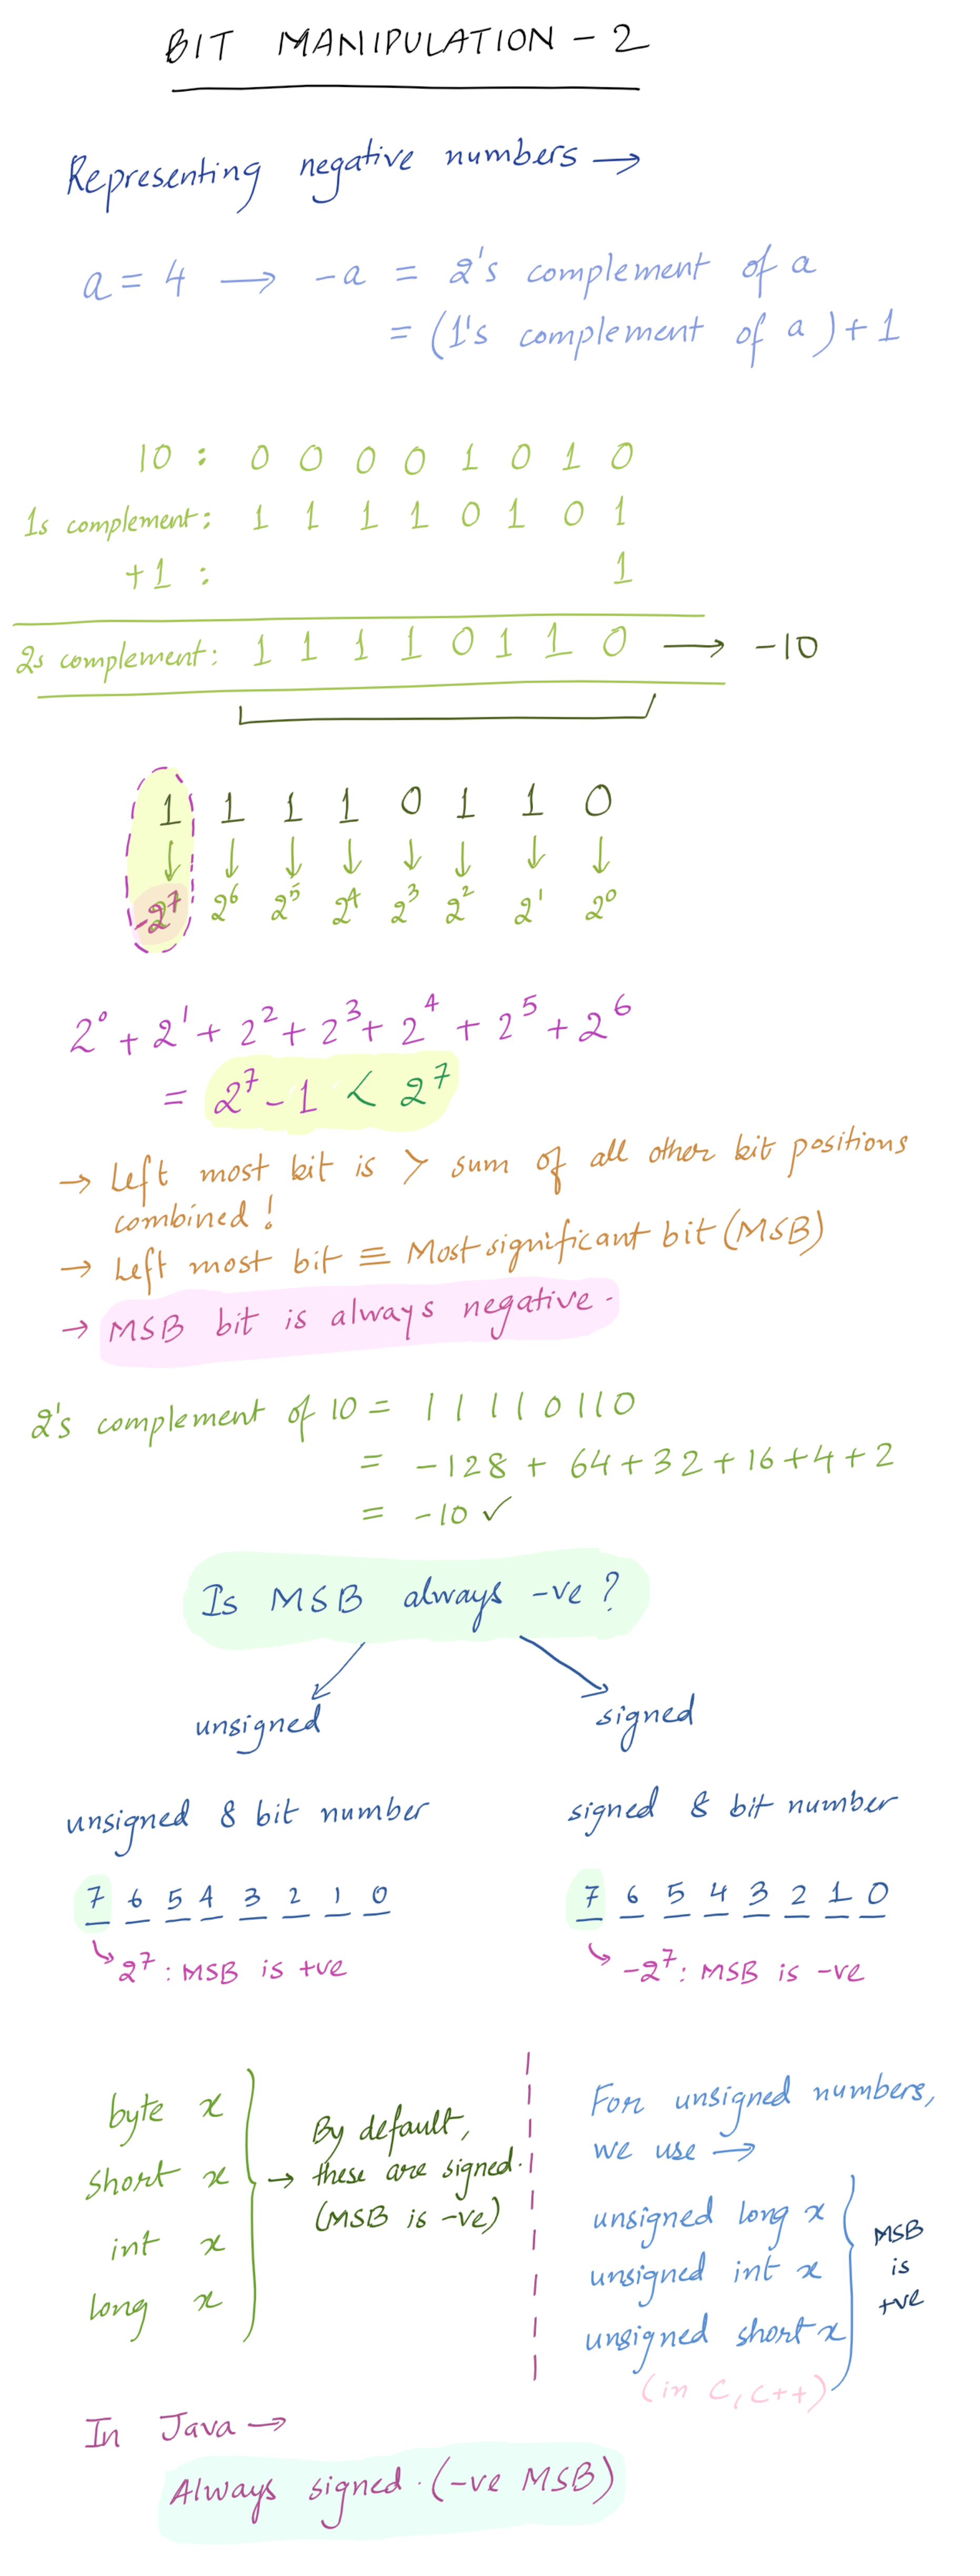 BIT MANIPULATION - 2
Representing negative numbers →
a = 4 → -a = 2's complement of a
= (1's complement of a) + 1
10 : 0 0 0 0 1 0 1 0
1s complement: 1 1 1 1 0 1 0 1
+1 : 1
2s complement: 1 1 1 1 0 1 1 0 → -10
1 1 1 1 0 1 1 0
↓ ↓ ↓ ↓ ↓ ↓ ↓ ↓
-2⁷ 2⁶ 2⁵ 2⁴ 2³ 2² 2¹ 2⁰
2⁰ + 2¹ + 2² + 2³ + 2⁴ + 2⁵ + 2⁶
= 2⁷ - 1 < 2⁷
→ Left most bit is > sum of all other bit positions
combined!
→ Left most bit ≡ Most significant bit (MSB)
→ MSB bit is always negative.
2's complement of 10 = 1 1 1 1 0 1 1 0
= -128 + 64 + 32 + 16 + 4 + 2
= -10 ✓
Is MSB always -ve?
unsigned signed
unsigned 8 bit number signed 8 bit number
7 6 5 4 3 2 1 0 7 6 5 4 3 2 1 0
↳ 2⁷ : MSB is +ve ↳ -2⁷ : MSB is -ve
byte x
short x
int x
long x
→ By default,
these are signed.
(MSB is -ve)
For unsigned numbers,
we use →
unsigned long x
unsigned int x
unsigned short x
(in C, C++)
MSB
is
+ve
In Java →
Always signed. (-ve MSB)